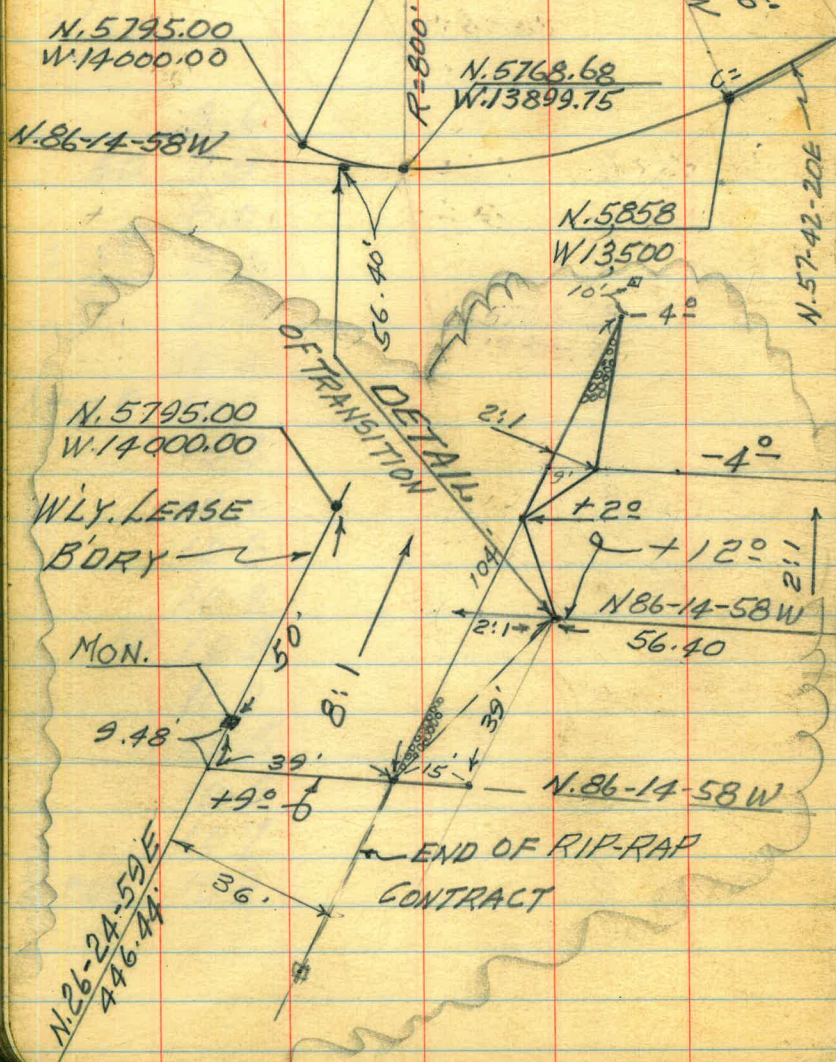 N.5795.00
W.14000.00
R=800'
N.5768.68
W.13899.75
C=
N.86-14-58W
N.57-42-20E
56.40'
N.5858
W13,500
10'
-4º
DETAIL
OF TRANSITION
2:1
9'
-4º
N.5795.00
W.14000.00
W'LY. LEASE
B'DRY
+2º
+12º
2:1
104'
N86-14-58W
56.40
2:1
MON.
50'
8:1
39'
9.48'
39'
15'
N.86-14-58W
+9º
END OF RIP-RAP
CONTRACT
36'
N.26-24-59E
446.44'